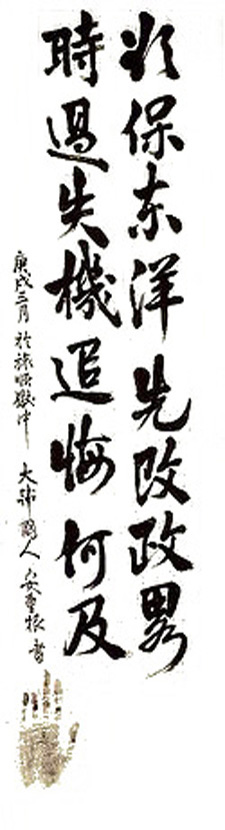 欲保東洋先改政畧
時過失機追悔何及
庚戌三月 於旅順獄中 大韓國人 安重根 書